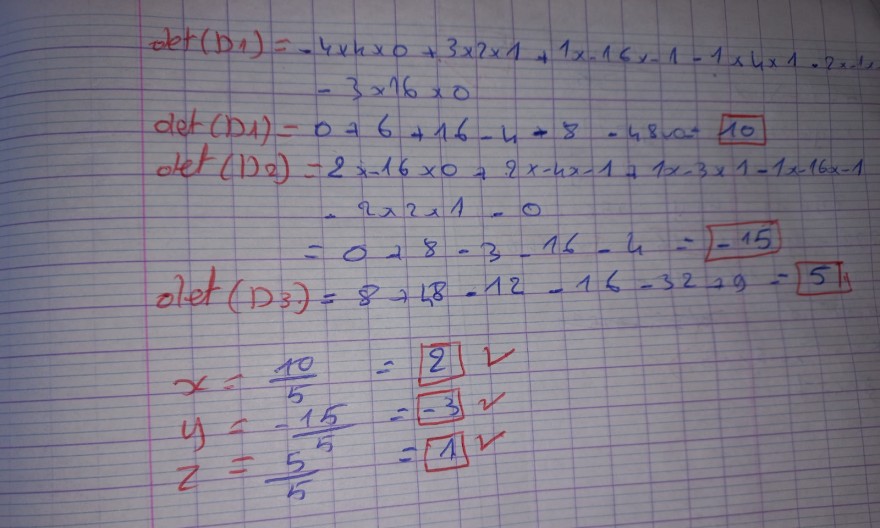 det(D1) = -4x4x0 + 3x2x1 + 1x-16x-1 - 1x4x1 - 2x-1x
- 3x16x0
det(D1) = 0 + 6 + 16 - 4 - 8 - 48x0 = 10
det(D2) = 2x-16x0 + 2x-4x-1 + 1x-3x1 - 1x-16x-1
- 2x2x1 - 0
= 0 + 8 - 3 - 16 - 4 = -15
det(D3) = 8 + 48 - 12 - 16 - 32 + 9 = 5
x = 10/5 = 2 ✓
y = -15/5 = -3 ✓
z = 5/5 = 1 ✓